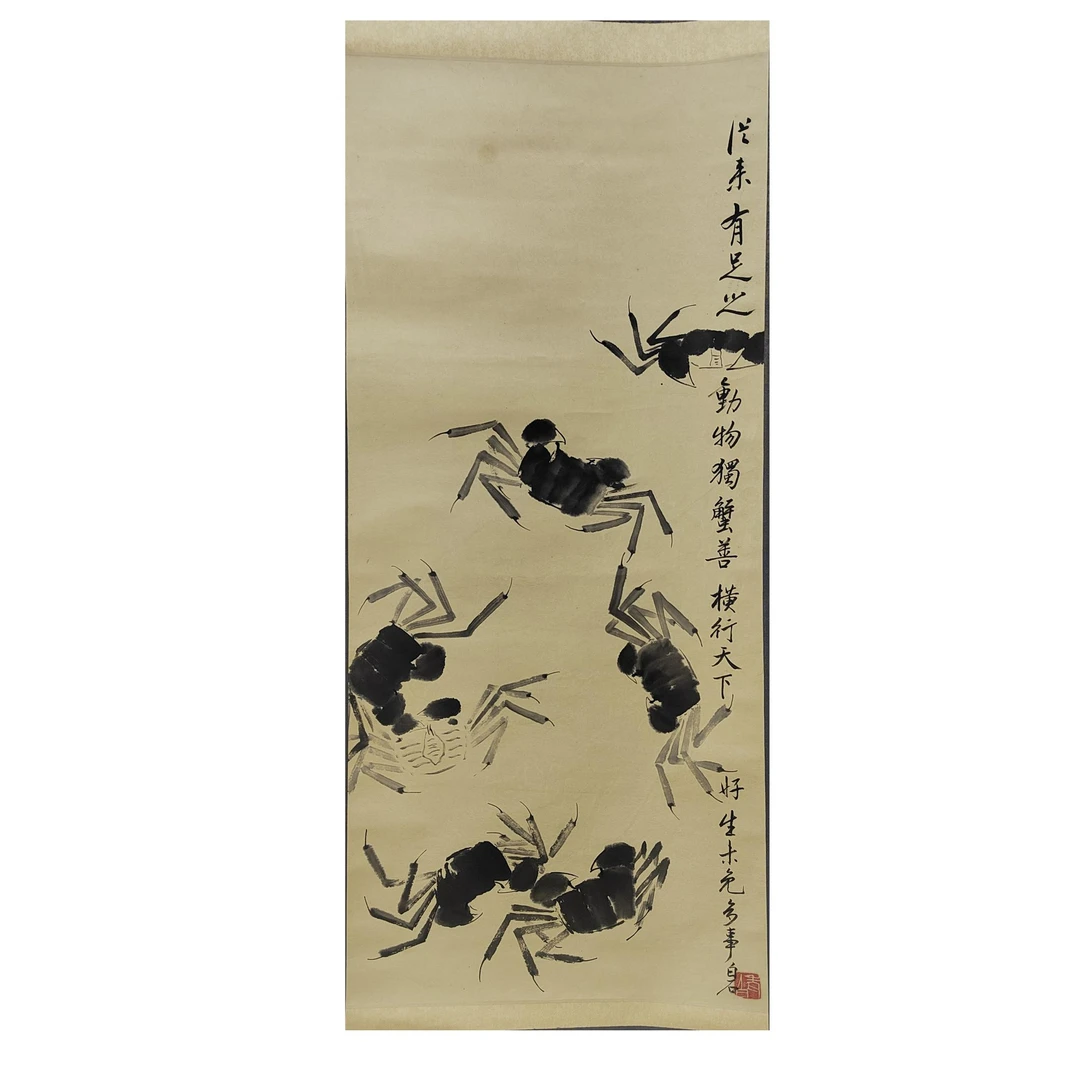 從来有足之動物獨蟹善横行天下好生未免多事白石